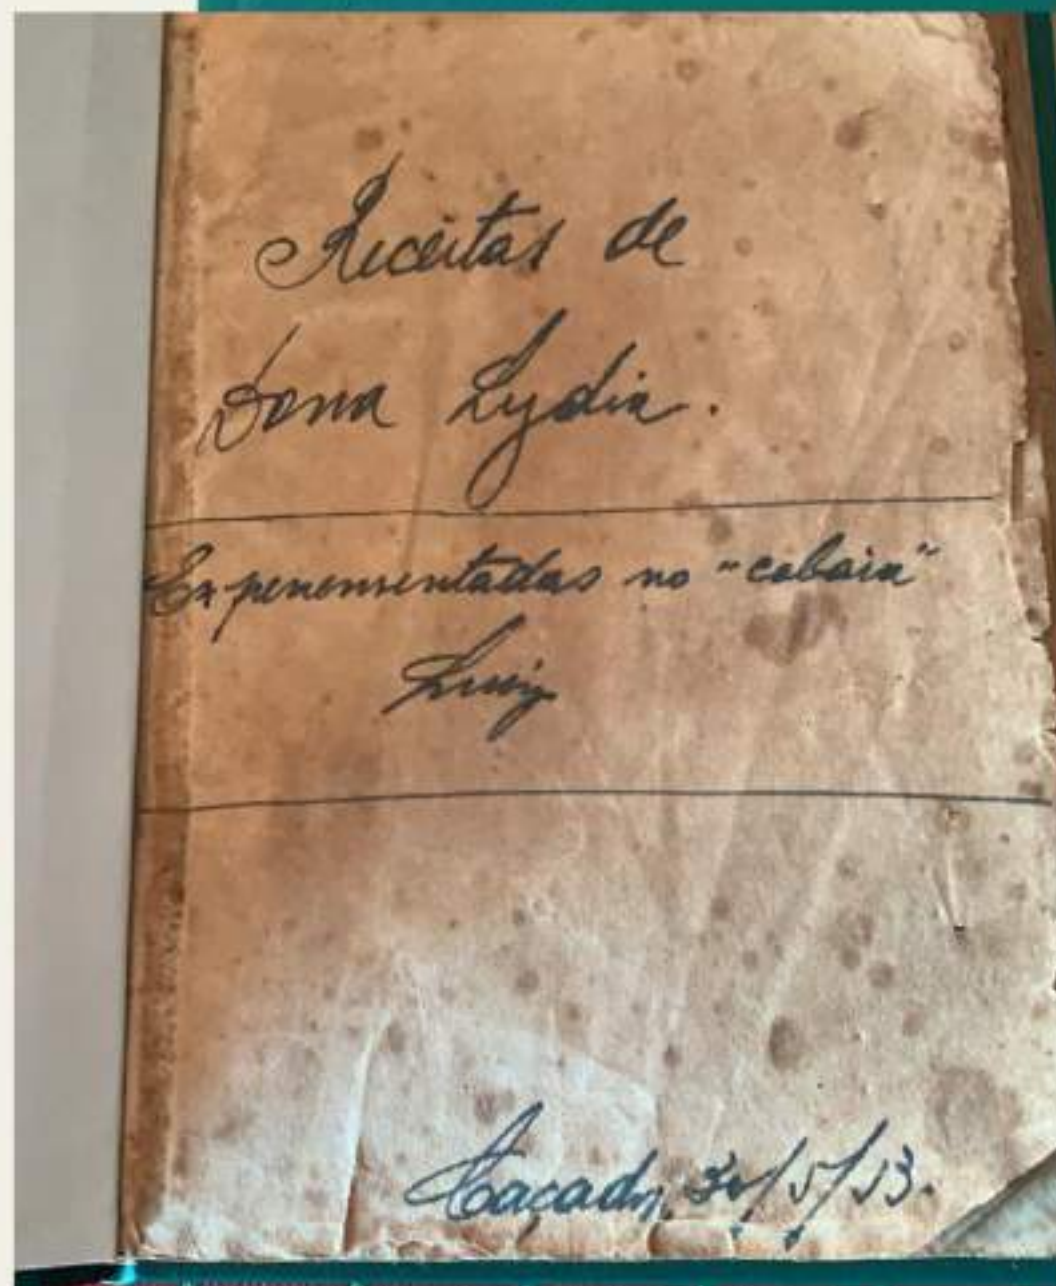 Receitas de
Dona Lydia.
Experimentadas no "cobaia"
Luiz
Caçador, 30/5/53.